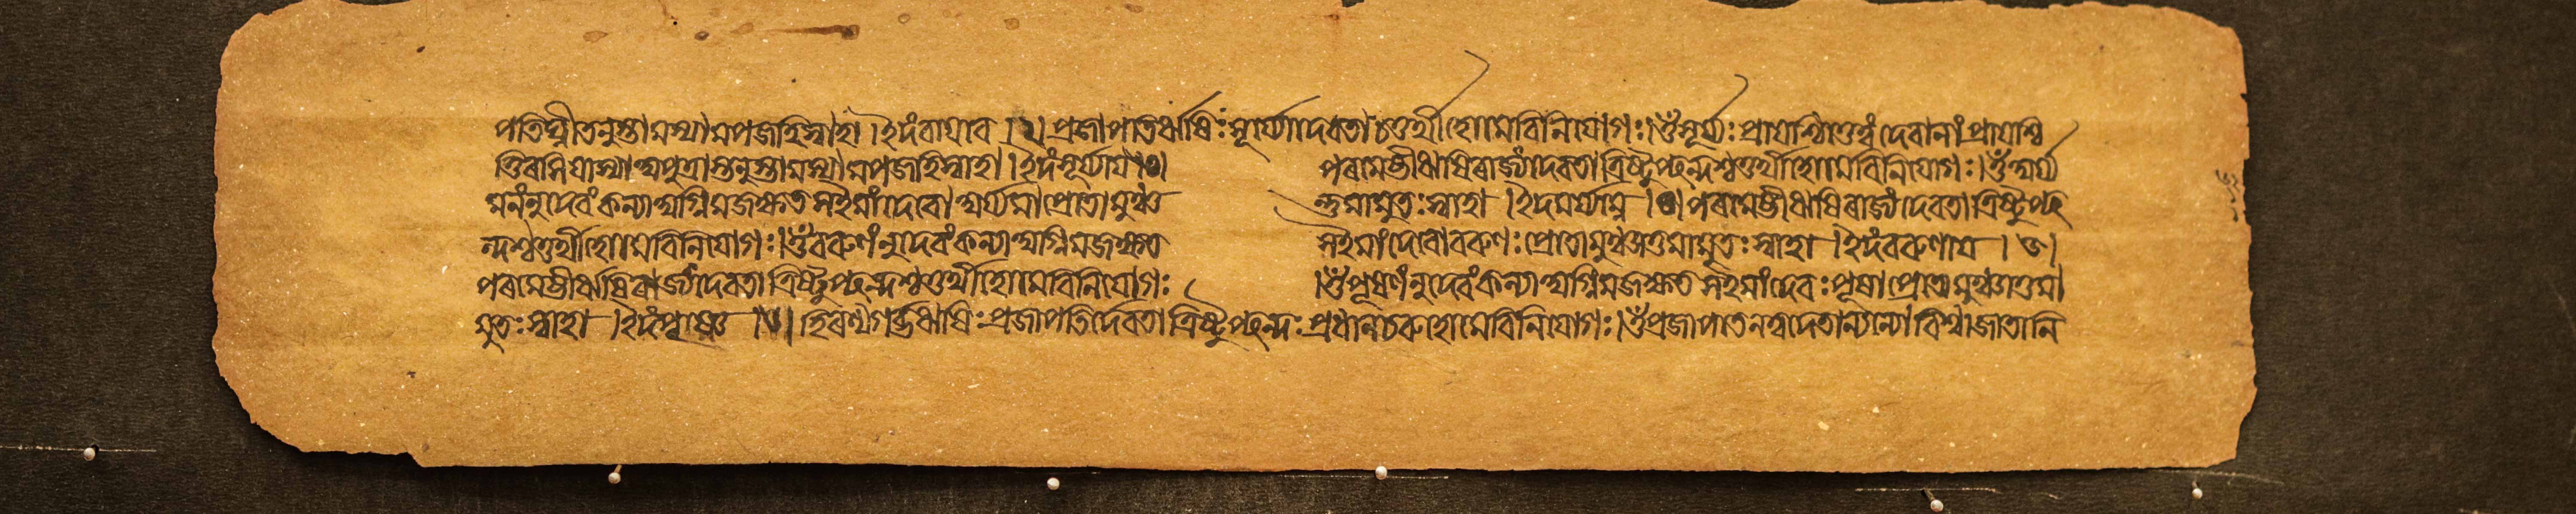 পতিঘ্নীতনুস্তামস্যামপজহিস্বাহা।ইদংবায়বে।২।প্রজাপতিরৃষিঃসূর্য্যোদেবতাচতুর্থীহোমেবিনিযোগঃ।ওঁসূর্য্যঃপ্রাযশ্চিত্তেত্বংদেবানাংপ্রাযশ্চি
ত্তিরসিযাস্যাঅপুত্র্যাস্তনুস্তামস্যামপজহিস্বাহা।ইদংসূর্য্যায।৩। পরমেষ্ঠীঋষিরাজ্যংদেবতাত্রিষ্টুপ্ছন্দশ্চতুর্থীহোমেবিনিযোগঃ।ওঁঅর্য্য
মনংনুদেবংকন্যাঅগ্নিমজক্ষতসইমাংদেবোঅর্য্যমাপ্রেতোমুঞ্চতু ন্তুমামুতঃস্বাহা।ইদমর্য্যম্ণে।৪।পরমেষ্ঠীঋষিরাজ্যংদেবতাত্রিষ্টুপ্ছ
ন্দশ্চতুর্থীহোমেবিনিযোগঃ।ওঁবরুণংনুদেবংকন্যাঅগ্নিমজক্ষত সইমাংদেবোবরুণঃপ্রেতোমুঞ্চতুমামুতঃস্বাহা।ইদংবরুণায।৫।
পরমেষ্ঠীঋষিরাজ্যংদেবতাত্রিষ্টুপ্ছন্দশ্চতুর্থীহোমেবিনিযোগঃ ।ওঁপূষণংনুদেবংকন্যাঅগ্নিমজক্ষতসইমাংদেবঃপূষাপ্রেতোমুঞ্চতুমা
মুতঃস্বাহা।ইদংপূষ্ণে।৬।হিরণ্যগর্ভঋষিঃপ্রজাপতির্দেবতাত্রিষ্টুপ্ছন্দঃপ্রধানচরুহোমেবিনিযোগঃ।ওঁপ্রজাপতেনত্বদেতান্যন্যোবিশ্বাজাতানি